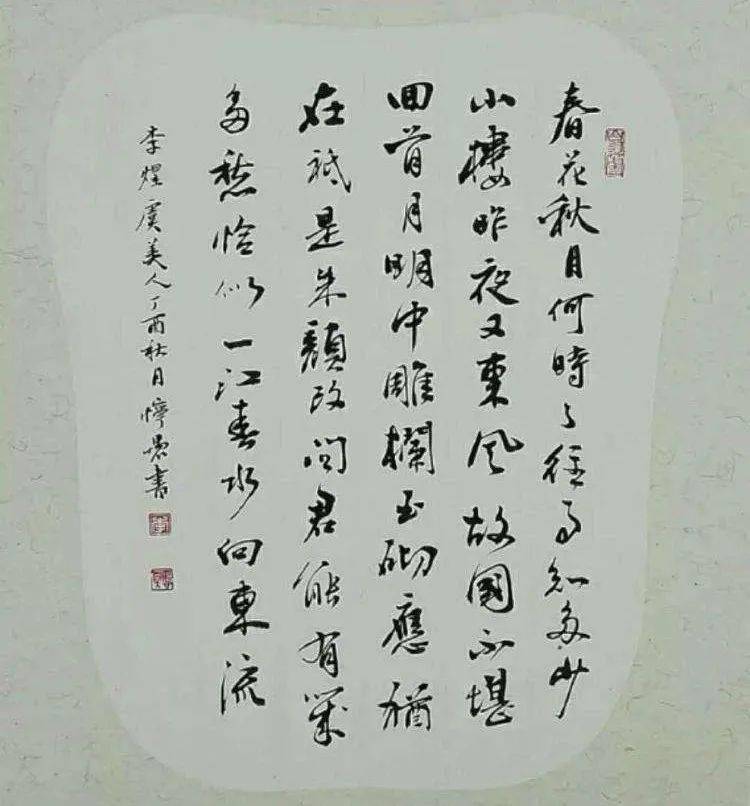 春花秋月何時了往事知多少
小樓昨夜又東風故國不堪
回首月明中雕欄玉砌應猶
在祗是朱顏改問君能有幾
多愁恰似一江春水向東流
李煜虞美人丁酉秋月書